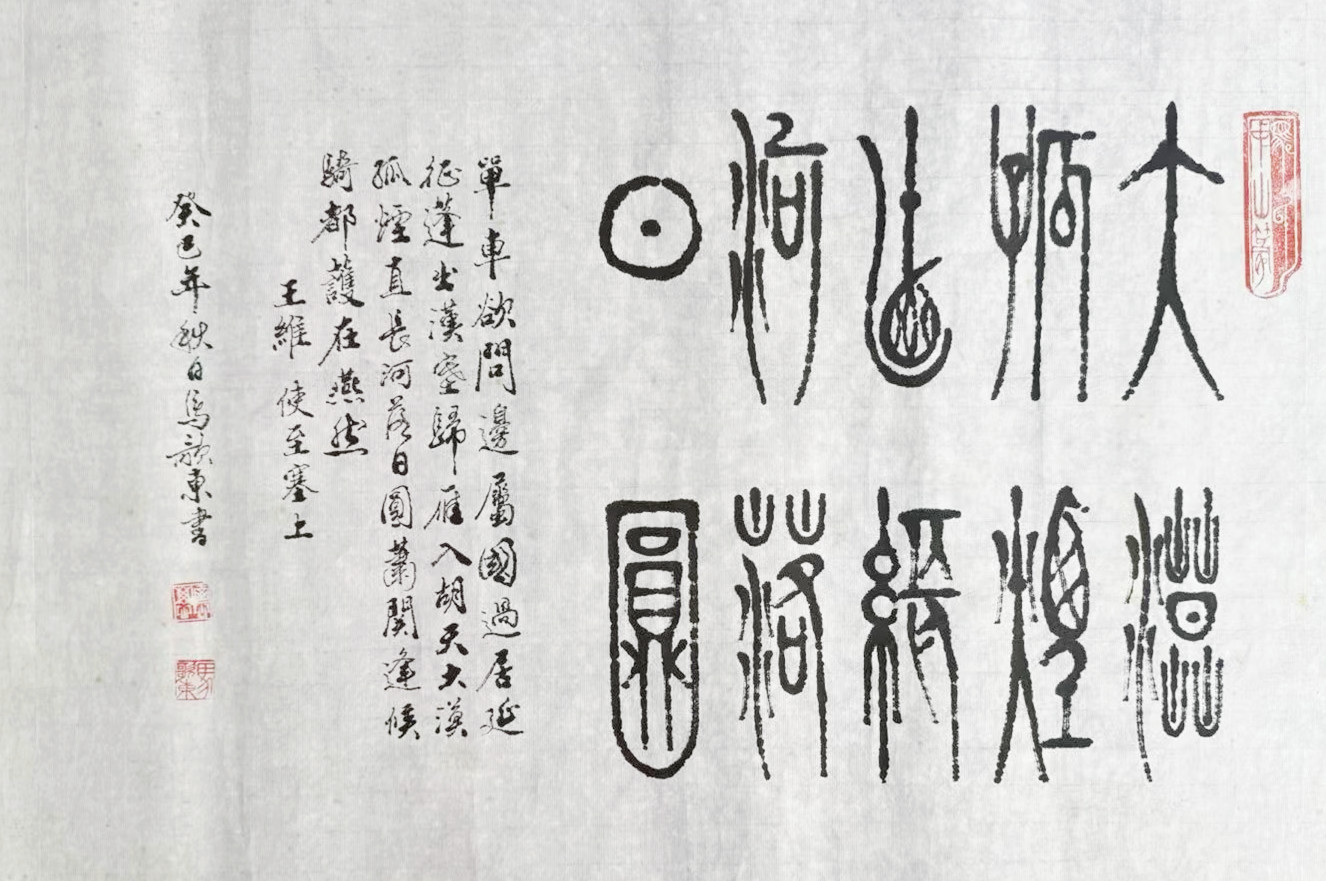 大漠
孤煙
直長
河落
日圓
單車欲問邊屬國過居延
征蓬出漢塞歸雁入胡天大漠
孤煙直長河落日圓蕭關逢候
騎都護在燕然
王維 使至塞上
癸巳年秋日馬歌東書